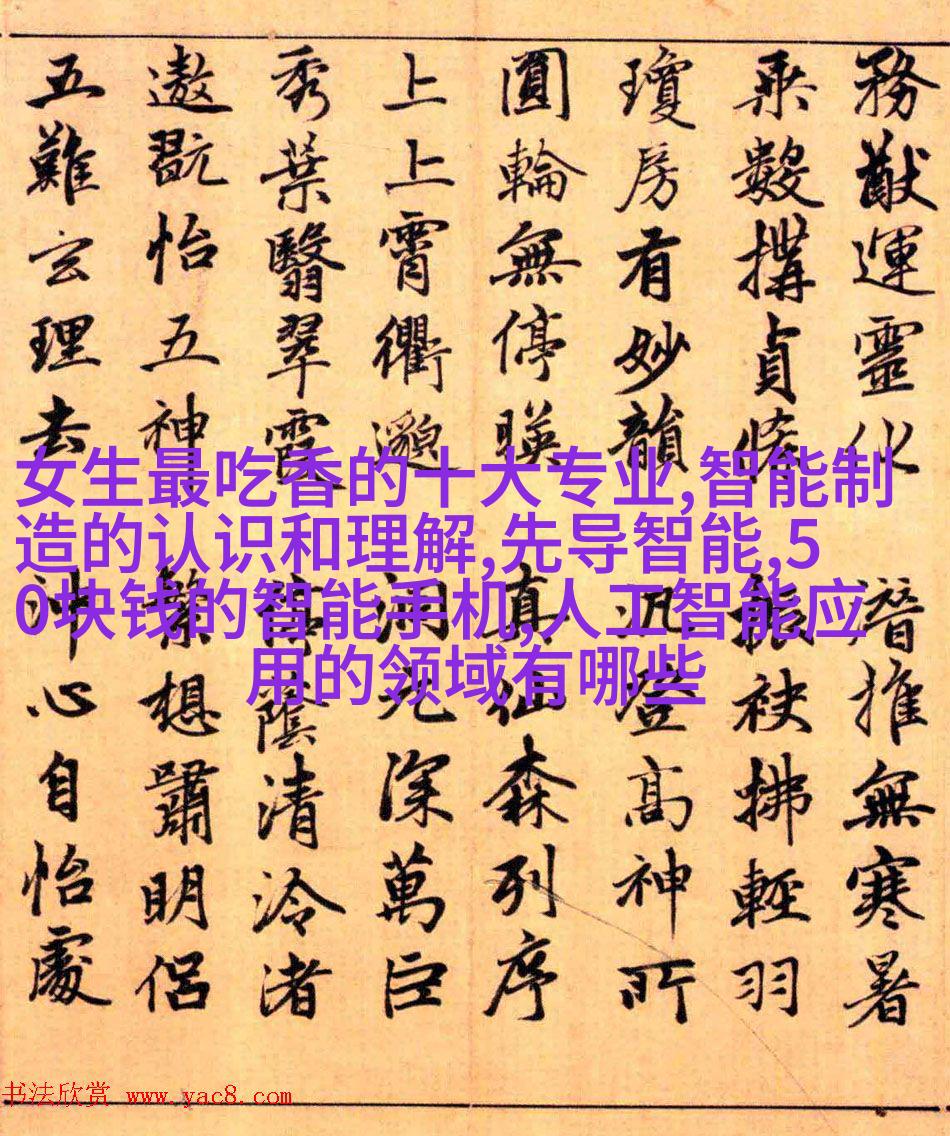 務猷運靈化潛推無寒暑
乘數構貞振袂拂輕羽
瓊房有妙韻登高神所
圓輪無停暎真仙森列序
上上霄衢邈洞元深萬巨
秀葉翳翠霞停蔭清泠渚
遨翫怡五神想嘯明侶
五難玄理去沖心自怡處
女生最吃香的十大专业,智能制
造的认识和理解,先导智能,5
0块钱的智能手机,人工智能应
用的领域有哪些
书法欣赏 www.yac8.com